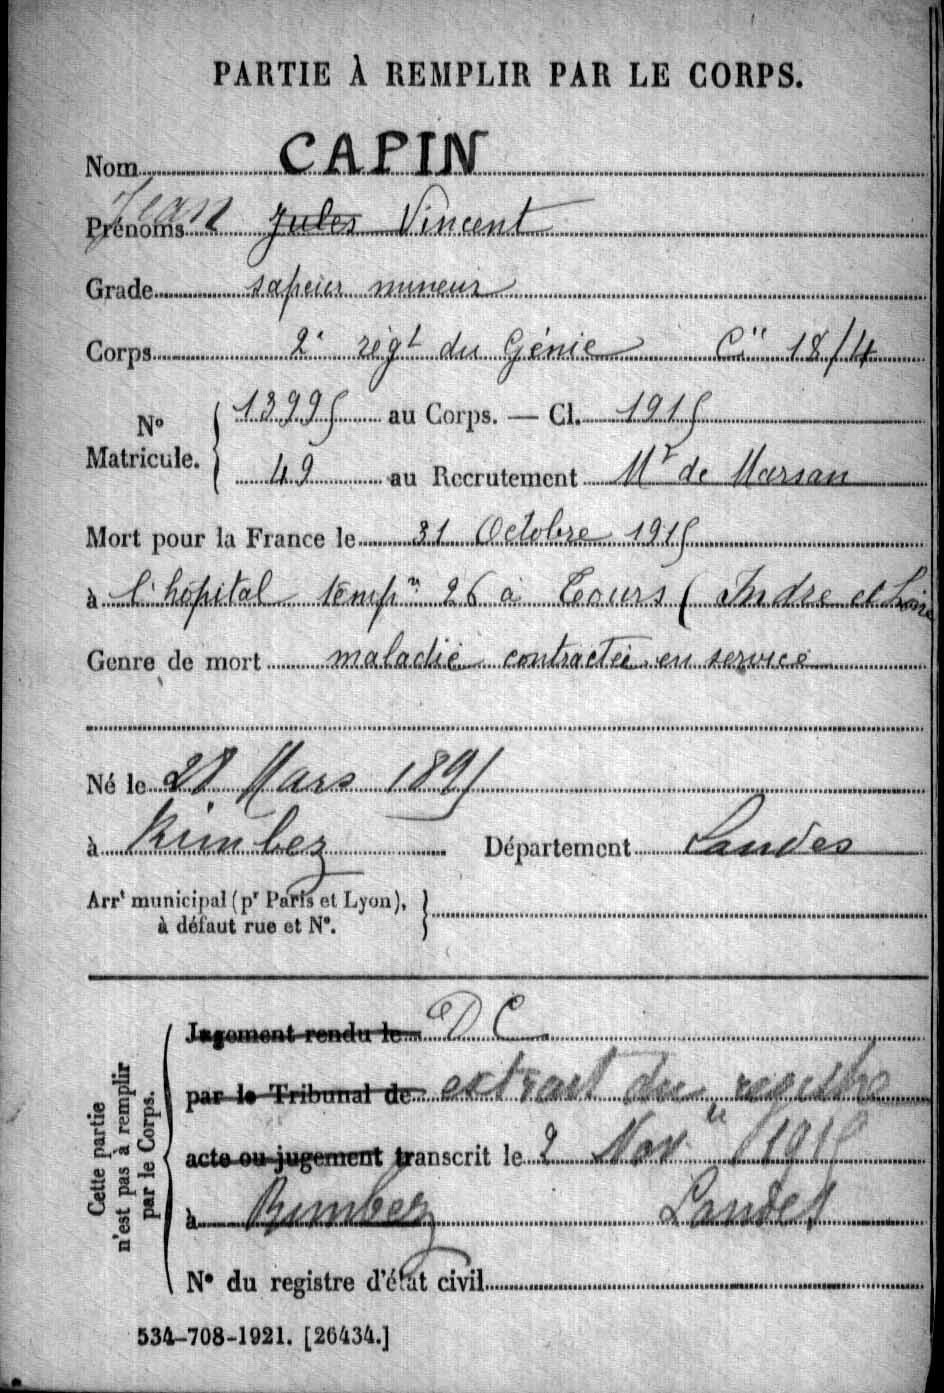 PARTIE À REMPLIR PAR LE CORPS.
Nom CAPIN
Prénoms Jean Jules Vincent
Grade sapeur mineur
Corps 2e régt du Génie Cie 18/4
No Matricule. 13995 au Corps. — Cl. 1915
49 au Recrutement Mt de Marsan
Mort pour la France le 31 Octobre 1915
à l'hôpital tempre 26 à Tours (Indre et Loire
Genre de mort maladie contractée en service
Né le 28 Mars 1895
à Rimbez Département Landes
Arrt municipal (pr Paris et Lyon),
à défaut rue et No.
Cette partie
n'est pas à remplir
par le Corps.
Jugement rendu le DC
par le Tribunal de extrait du registre
acte ou jugement transcrit le 2 Nov. 1915
à Rimbez Landes
No du registre d'état civil
534-708-1921. [26434.]